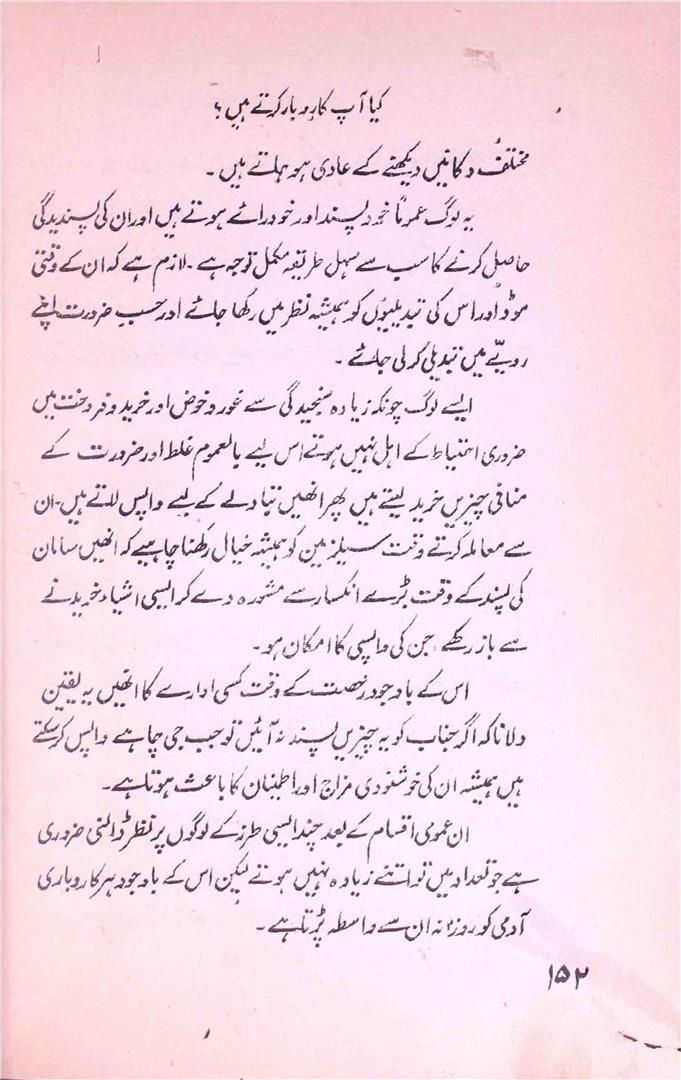 کیا آپ کاروبار کرتے ہیں؟
مختلف دکانیں دیکھنے کے عادی ہو جاتے ہیں۔
یہ لوگ عموماً خود پسند اور خود رائے ہوتے ہیں اور ان کی پسندیدگی
حاصل کرنے کا سب سے سہل طریقہ مکمل توجہ ہے۔ لازم ہے کہ ان کے وقتی
موڈ اور اس کی تبدیلیوں کو ہمیشہ نظر میں رکھا جائے اور حسبِ ضرورت اپنے
رویّے میں تبدیلی کر لی جائے۔
ایسے لوگ چونکہ زیادہ سنجیدگی سے غور و خوض اور خرید و فروخت میں
ضروری احتیاط کے اہل نہیں ہوتے اس لیے بالعموم غلط اور ضرورت کے
منافی چیزیں خرید لیتے ہیں پھر انھیں تبادلے کے لیے واپس لاتے ہیں۔ ان
سے معاملہ کرتے وقت سیلز مین کو ہمیشہ خیال رکھنا چاہیے کہ انھیں سامان
کی پسند کے وقت بڑے انکسار سے مشورہ دے کر ایسی اشیاء خریدنے
سے باز رکھے جن کی واپسی کا امکان ہو۔
اس کے باوجود رخصت کے وقت کسی ادارے کا انھیں یہ یقین
دلانا کہ اگر جناب کو یہ چیزیں پسند نہ آئیں تو جب جی چاہے واپس کر سکتے
ہیں ہمیشہ ان کی خوشنودی مزاج اور اطمینان کا باعث ہوتا ہے۔
ان عمومی اقسام کے بعد چند ایسی طرز کے لوگوں پر نظر ڈالنی ضروری
ہے جو تعداد میں تو اتنے زیادہ نہیں ہوتے لیکن اس کے باوجود ہر کاروباری
آدمی کو روزانہ ان سے واسطہ پڑتا ہے۔
۱۵۲